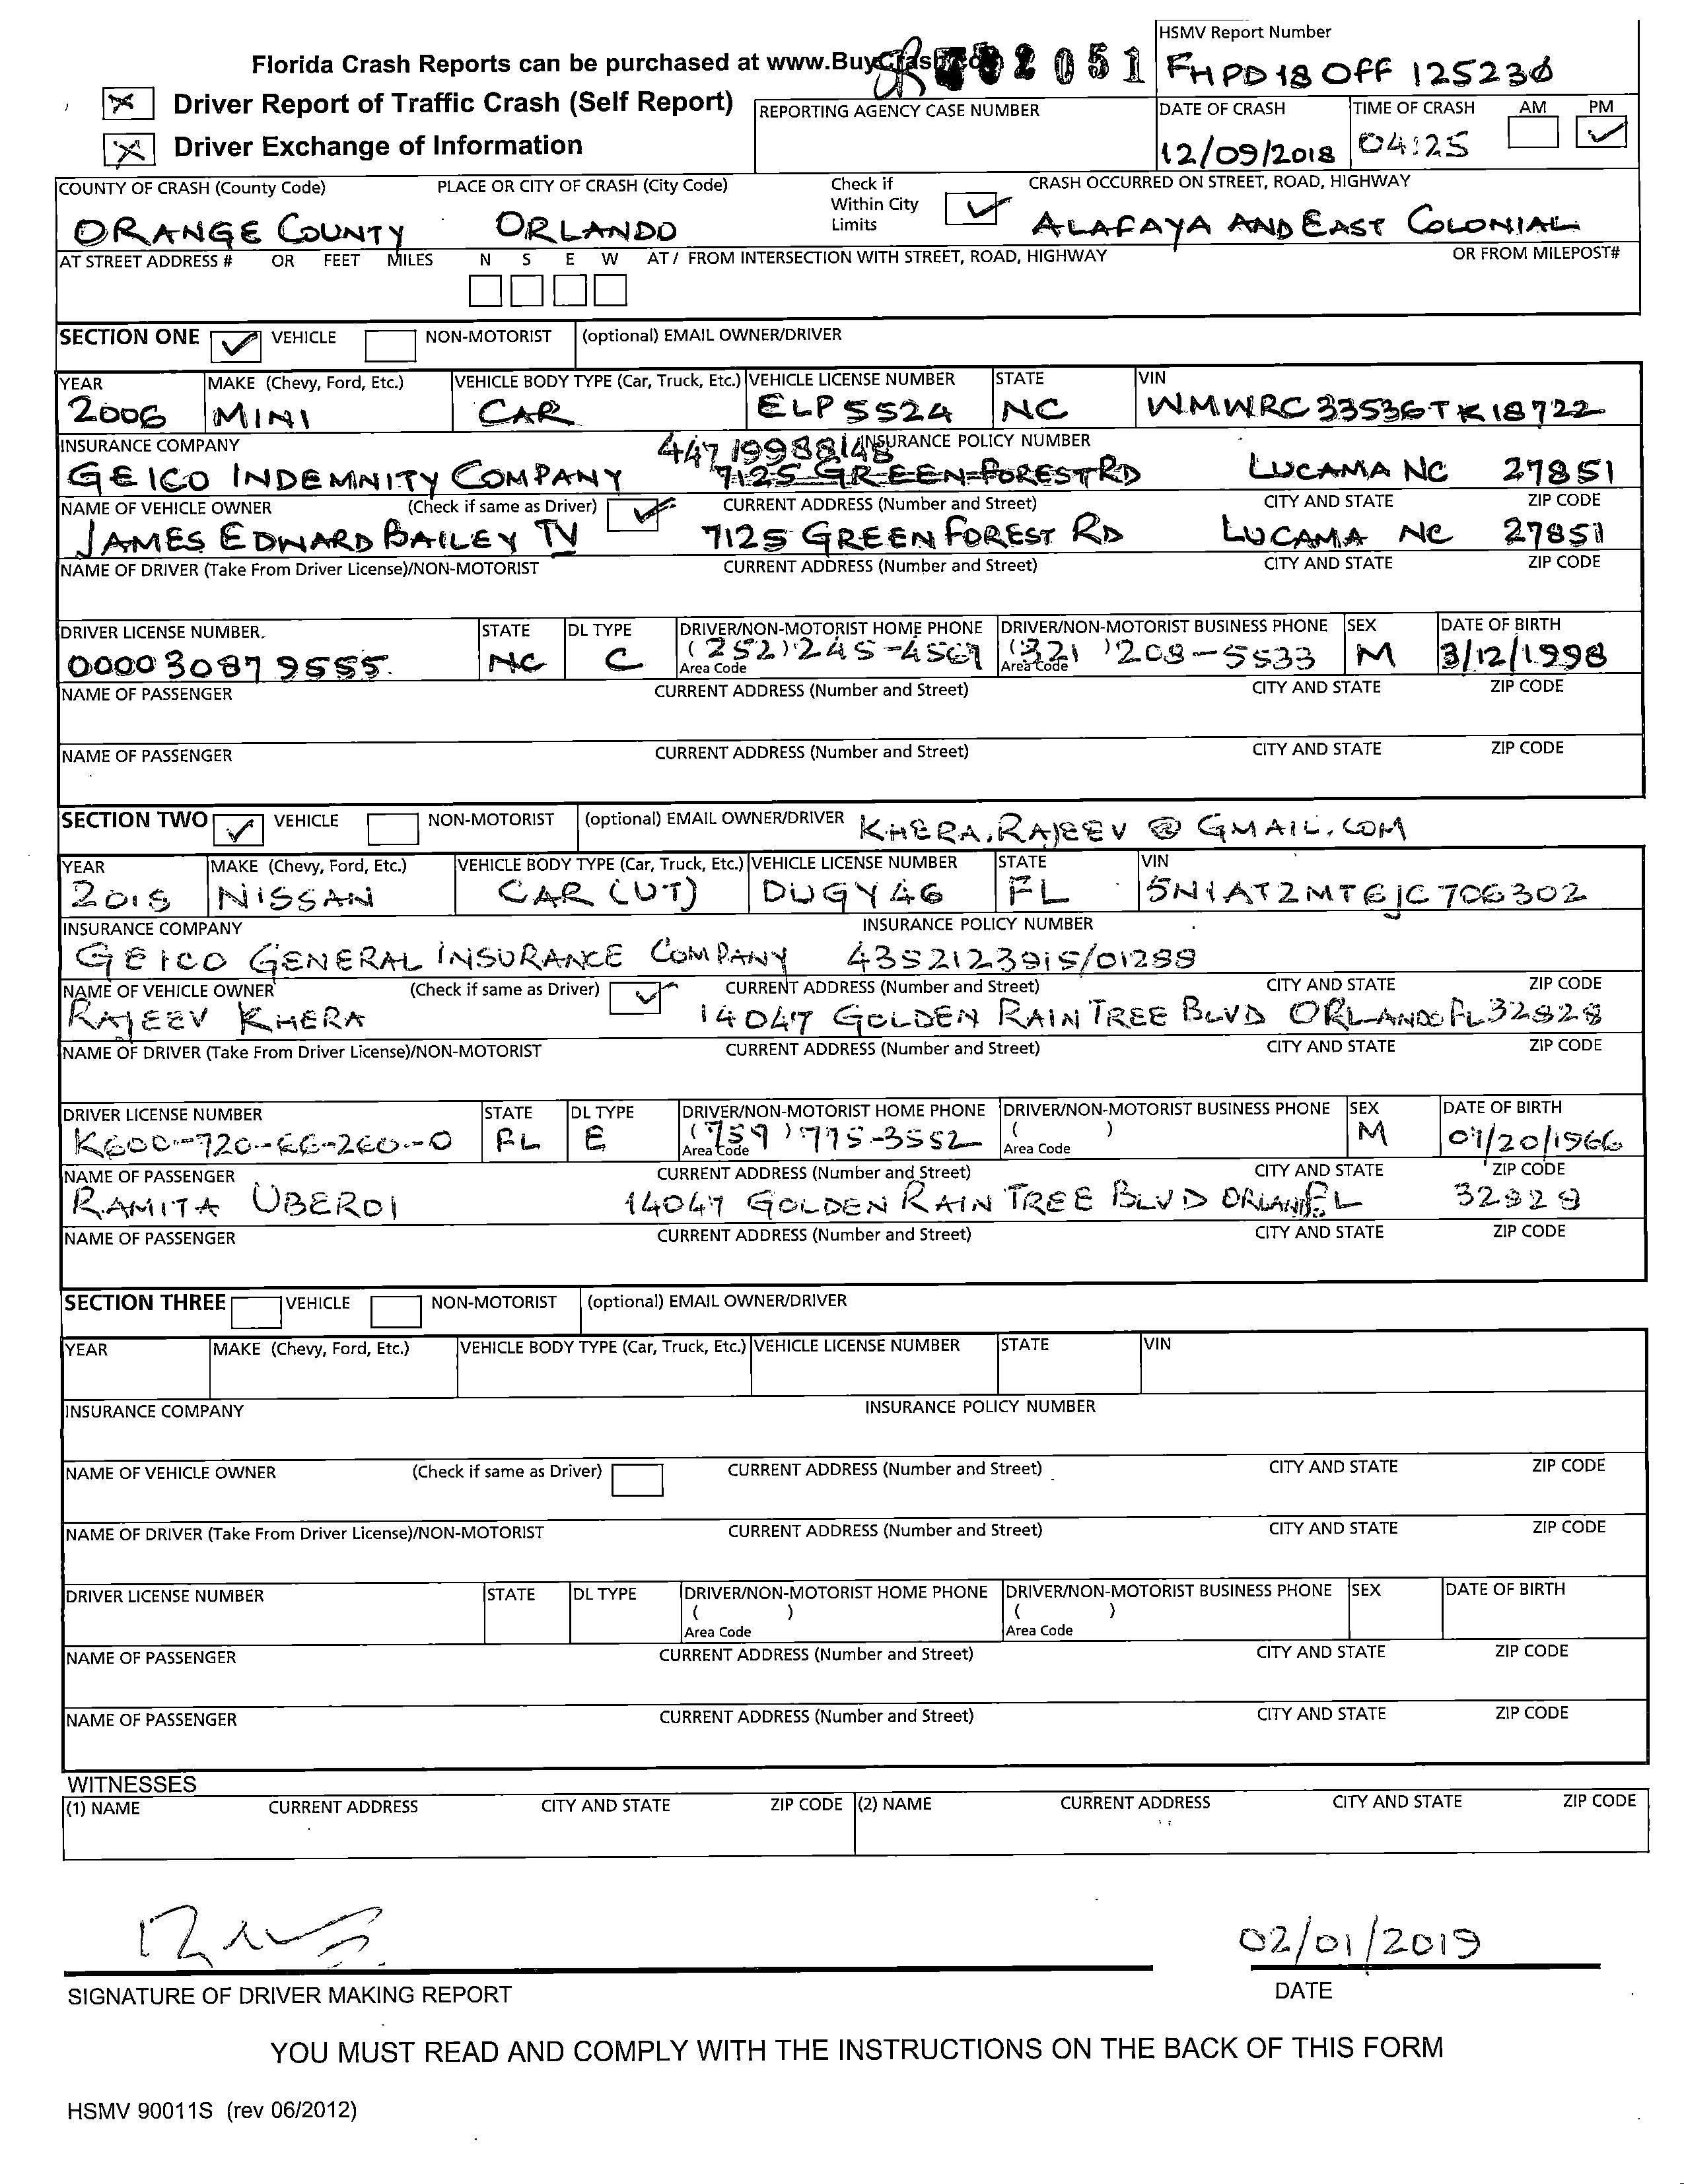 HSMV Report Number
Florida Crash Reports can be purchased at www.BuyCrash.com 2051 FHPD18OFF 125230
Driver Report of Traffic Crash (Self Report) REPORTING AGENCY CASE NUMBER DATE OF CRASH TIME OF CRASH AM PM
Driver Exchange of Information 12/09/2018 04:25
COUNTY OF CRASH (County Code) PLACE OR CITY OF CRASH (City Code) Check if Within City Limits CRASH OCCURRED ON STREET, ROAD, HIGHWAY
ORANGE COUNTY ORLANDO ALAFAYA AND EAST COLONIAL
AT STREET ADDRESS # OR FEET MILES N S E W AT / FROM INTERSECTION WITH STREET, ROAD, HIGHWAY OR FROM MILEPOST#
SECTION ONE VEHICLE NON-MOTORIST (optional) EMAIL OWNER/DRIVER
YEAR MAKE (Chevy, Ford, Etc.) VEHICLE BODY TYPE (Car, Truck, Etc.) VEHICLE LICENSE NUMBER STATE VIN
2006 MINI CAR ELP5524 NC WMWRC33536TK18722
INSURANCE COMPANY 44719988148 INSURANCE POLICY NUMBER
GEICO INDEMNITY COMPANY 7125 GREEN FOREST RD LUCAMA NC 27851
NAME OF VEHICLE OWNER (Check if same as Driver) CURRENT ADDRESS (Number and Street) CITY AND STATE ZIP CODE
JAMES EDWARD BAILEY IV 7125 GREEN FOREST RD LUCAMA NC 27851
NAME OF DRIVER (Take From Driver License)/NON-MOTORIST CURRENT ADDRESS (Number and Street) CITY AND STATE ZIP CODE
DRIVER LICENSE NUMBER STATE DL TYPE DRIVER/NON-MOTORIST HOME PHONE DRIVER/NON-MOTORIST BUSINESS PHONE SEX DATE OF BIRTH
000030879555 NC C (252) 245-4569 (321) 208-5533 M 3/12/1998
Area Code Area Code
NAME OF PASSENGER CURRENT ADDRESS (Number and Street) CITY AND STATE ZIP CODE
NAME OF PASSENGER CURRENT ADDRESS (Number and Street) CITY AND STATE ZIP CODE
SECTION TWO VEHICLE NON-MOTORIST (optional) EMAIL OWNER/DRIVER KHERA.RAJEEV@GMAIL.COM
YEAR MAKE (Chevy, Ford, Etc.) VEHICLE BODY TYPE (Car, Truck, Etc.) VEHICLE LICENSE NUMBER STATE VIN
2018 NISSAN CAR (UT) DUGY46 FL 5N1AT2MT6JC706302
INSURANCE COMPANY INSURANCE POLICY NUMBER
GEICO GENERAL INSURANCE COMPANY 4352123915/01288
NAME OF VEHICLE OWNER (Check if same as Driver) CURRENT ADDRESS (Number and Street) CITY AND STATE ZIP CODE
RAJEEV KHERA 14047 GOLDEN RAIN TREE BLVD ORLANDO FL 32828
NAME OF DRIVER (Take From Driver License)/NON-MOTORIST CURRENT ADDRESS (Number and Street) CITY AND STATE ZIP CODE
DRIVER LICENSE NUMBER STATE DL TYPE DRIVER/NON-MOTORIST HOME PHONE DRIVER/NON-MOTORIST BUSINESS PHONE SEX DATE OF BIRTH
K600-720-66-260-0 FL E (759) 775-3552 ( ) M 07/20/1966
Area Code Area Code
NAME OF PASSENGER CURRENT ADDRESS (Number and Street) CITY AND STATE ZIP CODE
RAMITA UBEROI 14047 GOLDEN RAIN TREE BLVD ORLANDO FL 32828
NAME OF PASSENGER CURRENT ADDRESS (Number and Street) CITY AND STATE ZIP CODE
SECTION THREE VEHICLE NON-MOTORIST (optional) EMAIL OWNER/DRIVER
YEAR MAKE (Chevy, Ford, Etc.) VEHICLE BODY TYPE (Car, Truck, Etc.) VEHICLE LICENSE NUMBER STATE VIN
INSURANCE COMPANY INSURANCE POLICY NUMBER
NAME OF VEHICLE OWNER (Check if same as Driver) CURRENT ADDRESS (Number and Street) CITY AND STATE ZIP CODE
NAME OF DRIVER (Take From Driver License)/NON-MOTORIST CURRENT ADDRESS (Number and Street) CITY AND STATE ZIP CODE
DRIVER LICENSE NUMBER STATE DL TYPE DRIVER/NON-MOTORIST HOME PHONE DRIVER/NON-MOTORIST BUSINESS PHONE SEX DATE OF BIRTH
( ) ( )
Area Code Area Code
NAME OF PASSENGER CURRENT ADDRESS (Number and Street) CITY AND STATE ZIP CODE
NAME OF PASSENGER CURRENT ADDRESS (Number and Street) CITY AND STATE ZIP CODE
WITNESSES
(1) NAME CURRENT ADDRESS CITY AND STATE ZIP CODE (2) NAME CURRENT ADDRESS CITY AND STATE ZIP CODE
02/01/2019
SIGNATURE OF DRIVER MAKING REPORT DATE
YOU MUST READ AND COMPLY WITH THE INSTRUCTIONS ON THE BACK OF THIS FORM
HSMV 90011S (rev 06/2012)